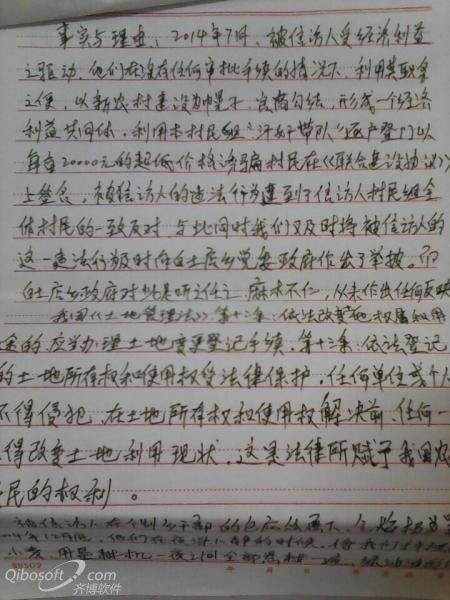 事实与理由：2014年7月，被信访人受经济利益
之驱动，他们在没有任何审批手续的情况下，利用其职务
之便，以新农村建设为幌子，官商勾结，形成一个经济
利益共同体。利用本村民组"汗奸带队"逐户登门以
每亩20000元的超低价格诱骗村民在《联合建设协议》
上签名，被信访人的违法行为遭到了信访人村民组全
体村民的一致反对，与此同时我们又及时将被信访人的
这一违法行为及时向白土店乡党委政府作出了举报。而
白土店乡政府对此是听之任之，麻木不仁，从未作出任何反映
我国《土地管理法》第十二条：依法改变土地权属和用
途的，应当办理土地变更登记手续。第十三条：依法登记
的土地所有权和使用权受法律保护，任何单位或个人
不得侵犯，在土地所有权和使用权解决前，任何一
得改变土地利用现状，这是法律所赋予我国农
民的权利。
被信访人在个别乡干部的包庇纵容下，
年12月底，他们在夜深人静的时候，将我们
小麦，用
Qibosoft.com
齐博软件